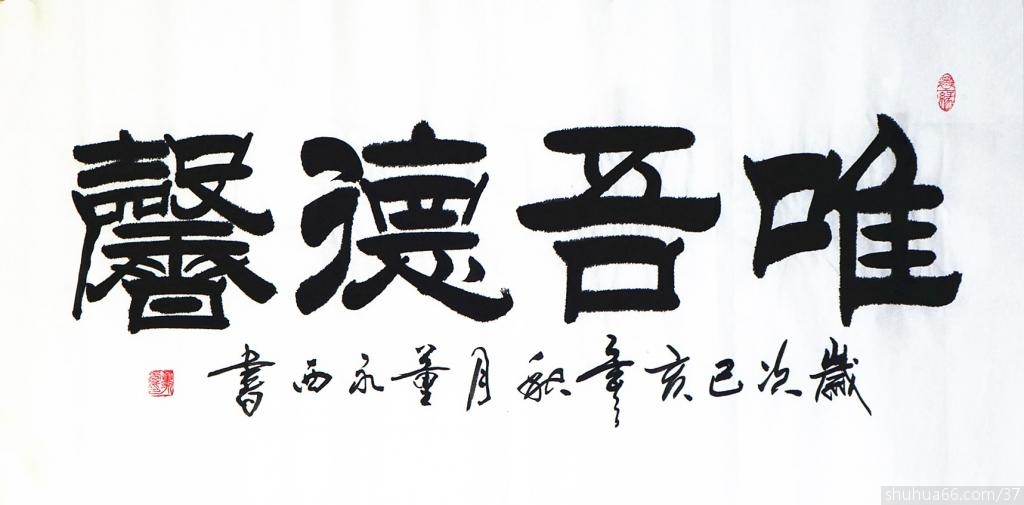 唯吾德馨
歲次己亥年秋月董永西書
shuhua66.com/37